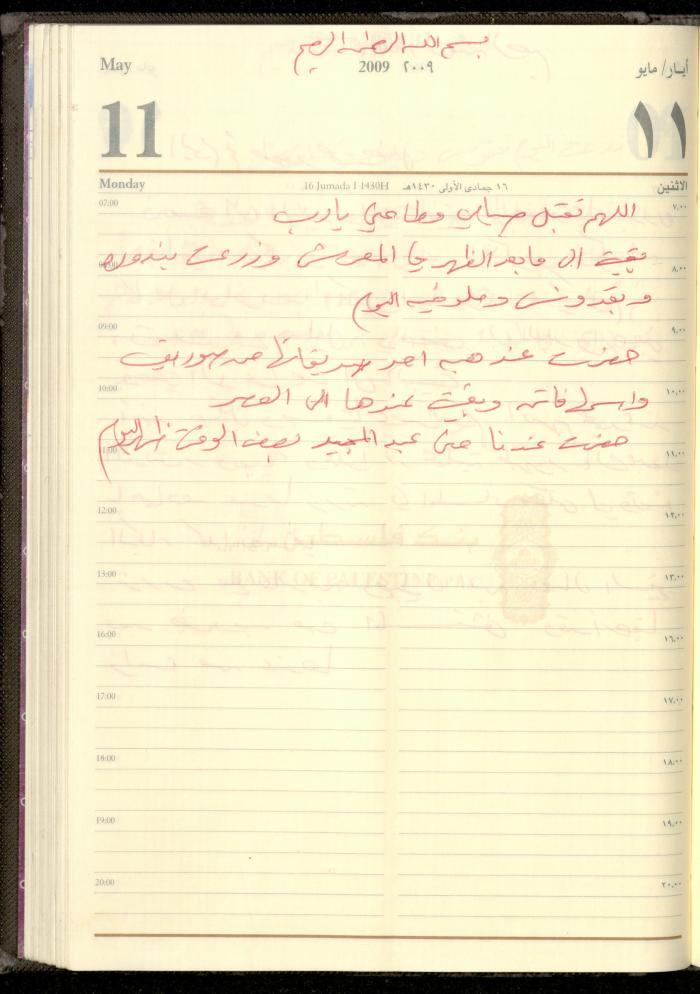 بسم الله الرحمن الرحيم
May 2009 ٢٠٠٩ أيـار/ مايو
11 ١١
Monday 16 Jumada I 1430H ١٦ جمادى الأولى ١٤٣٠هـ الاثنين
07:00 اللهم تقبل صلاتي وطاعتي يا رب ٧,٠٠
08:00 بقيت الى ما بعد الظهر في المعرش وزرعت بندوره ٨,٠٠
وبقدونس وملوخيه اليوم
09:00 ٩,٠٠
حضرت عند هبه احد صديقاتها من صوريف
10:00 ١٠,٠٠
واسمها فاتن وبقيت عندها الى العصر
11:00 حضرت عندنا منى عبد المجيد بعض الوقت ظهر اليوم ١١,٠٠
12:00 ١٢,٠٠
13:00 ١٣,٠٠
BANK OF PALESTINE
16:00 ١٦,٠٠
17:00 ١٧,٠٠
18:00 ١٨,٠٠
19:00 ١٩,٠٠
20:00 ٢٠,٠٠